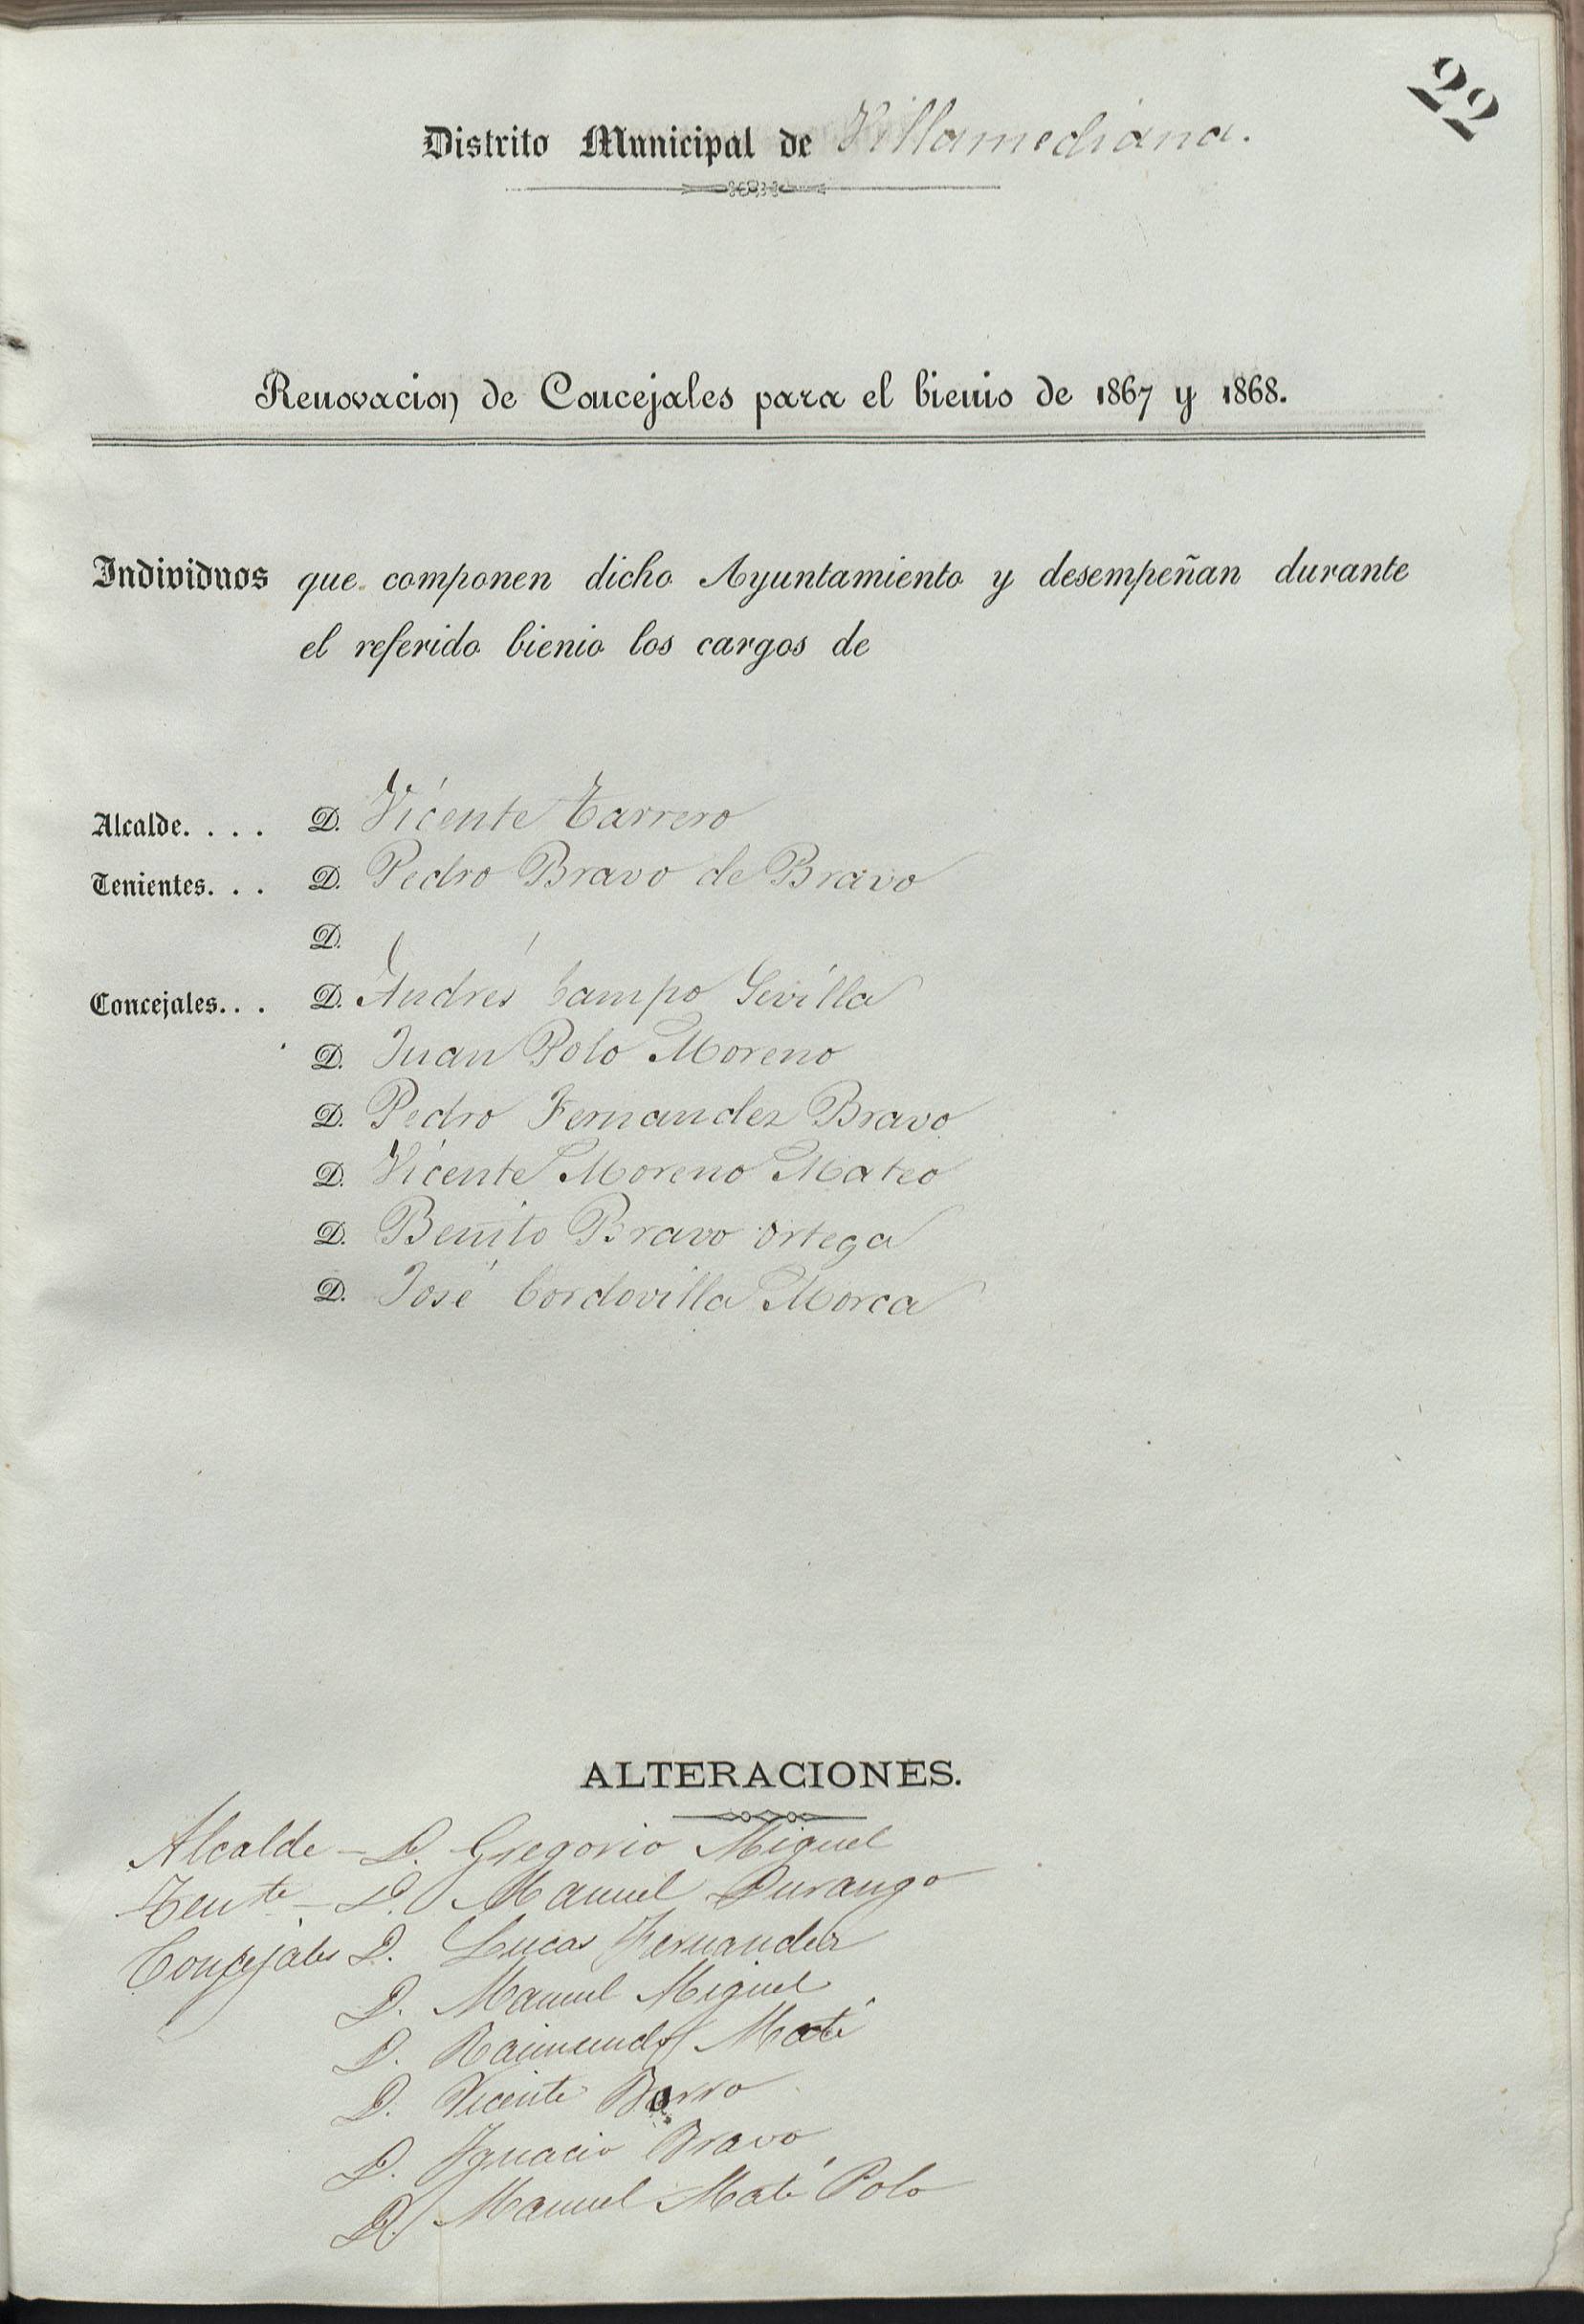 22
Distrito Municipal de Villamediana.
Renovacion de Concejales para el bienio de 1867 y 1868.
Individuos que componen dicho Ayuntamiento y desempeñan durante
el referido bienio los cargos de
Alcalde. . . . D. Vicente Tarrero
Tenientes. . . D. Pedro Bravo de Bravo
D.
Concejales. . . D. Andrés Campo Sevilla
D. Juan Polo Moreno
D. Pedro Fernandez Bravo
D. Vicente Moreno Mateo
D. Benito Bravo Ortega
D. José Cordovilla Morca
ALTERACIONES.
Alcalde - D. Gregorio Miguel
Tente - D. Manuel Durango
Concejales D. Lucas Fernandez
D. Manuel Miguel
D. Raimundo Maté
D. Vicente
D. Ignacio Bravo
D. Manuel Maté Polo